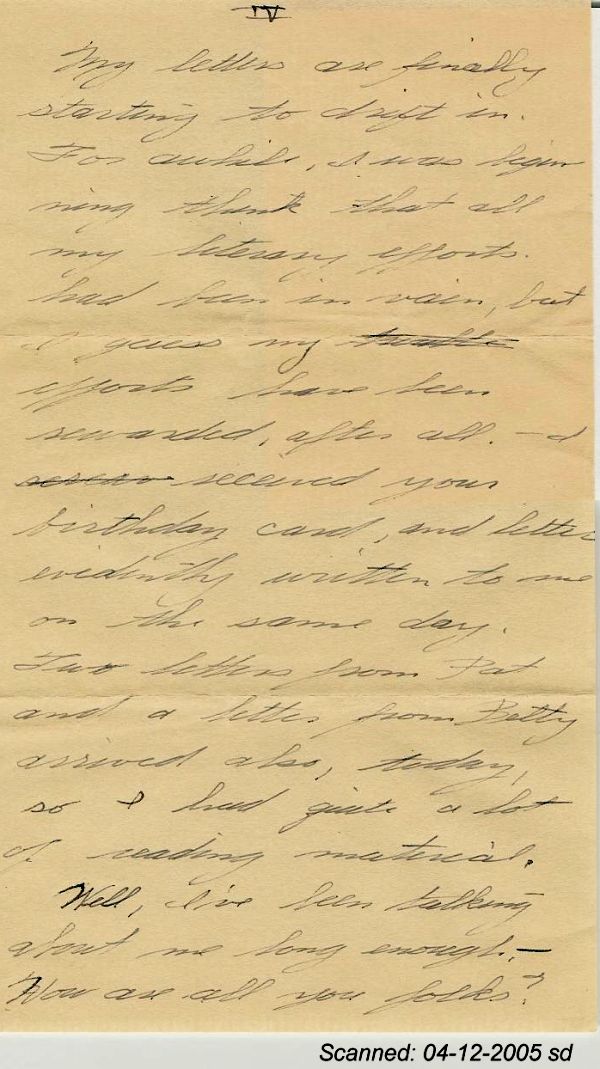 IV
My letters are finally
starting to drift in.
For awhile, I was begin
ning think that all
my literary efforts.
had been in vain, but
I guess my
efforts have been
rewarded, after all. – I
received your
birthday card, and letter
evidently written to me
on the same day.
Two letters from Pat
and a letter from Betty
arrived also, today,
so I had quite a lot
of reading material.
Well, I've been talking
about me long enough, –
How are all you folks?
Scanned: 04-12-2005 sd